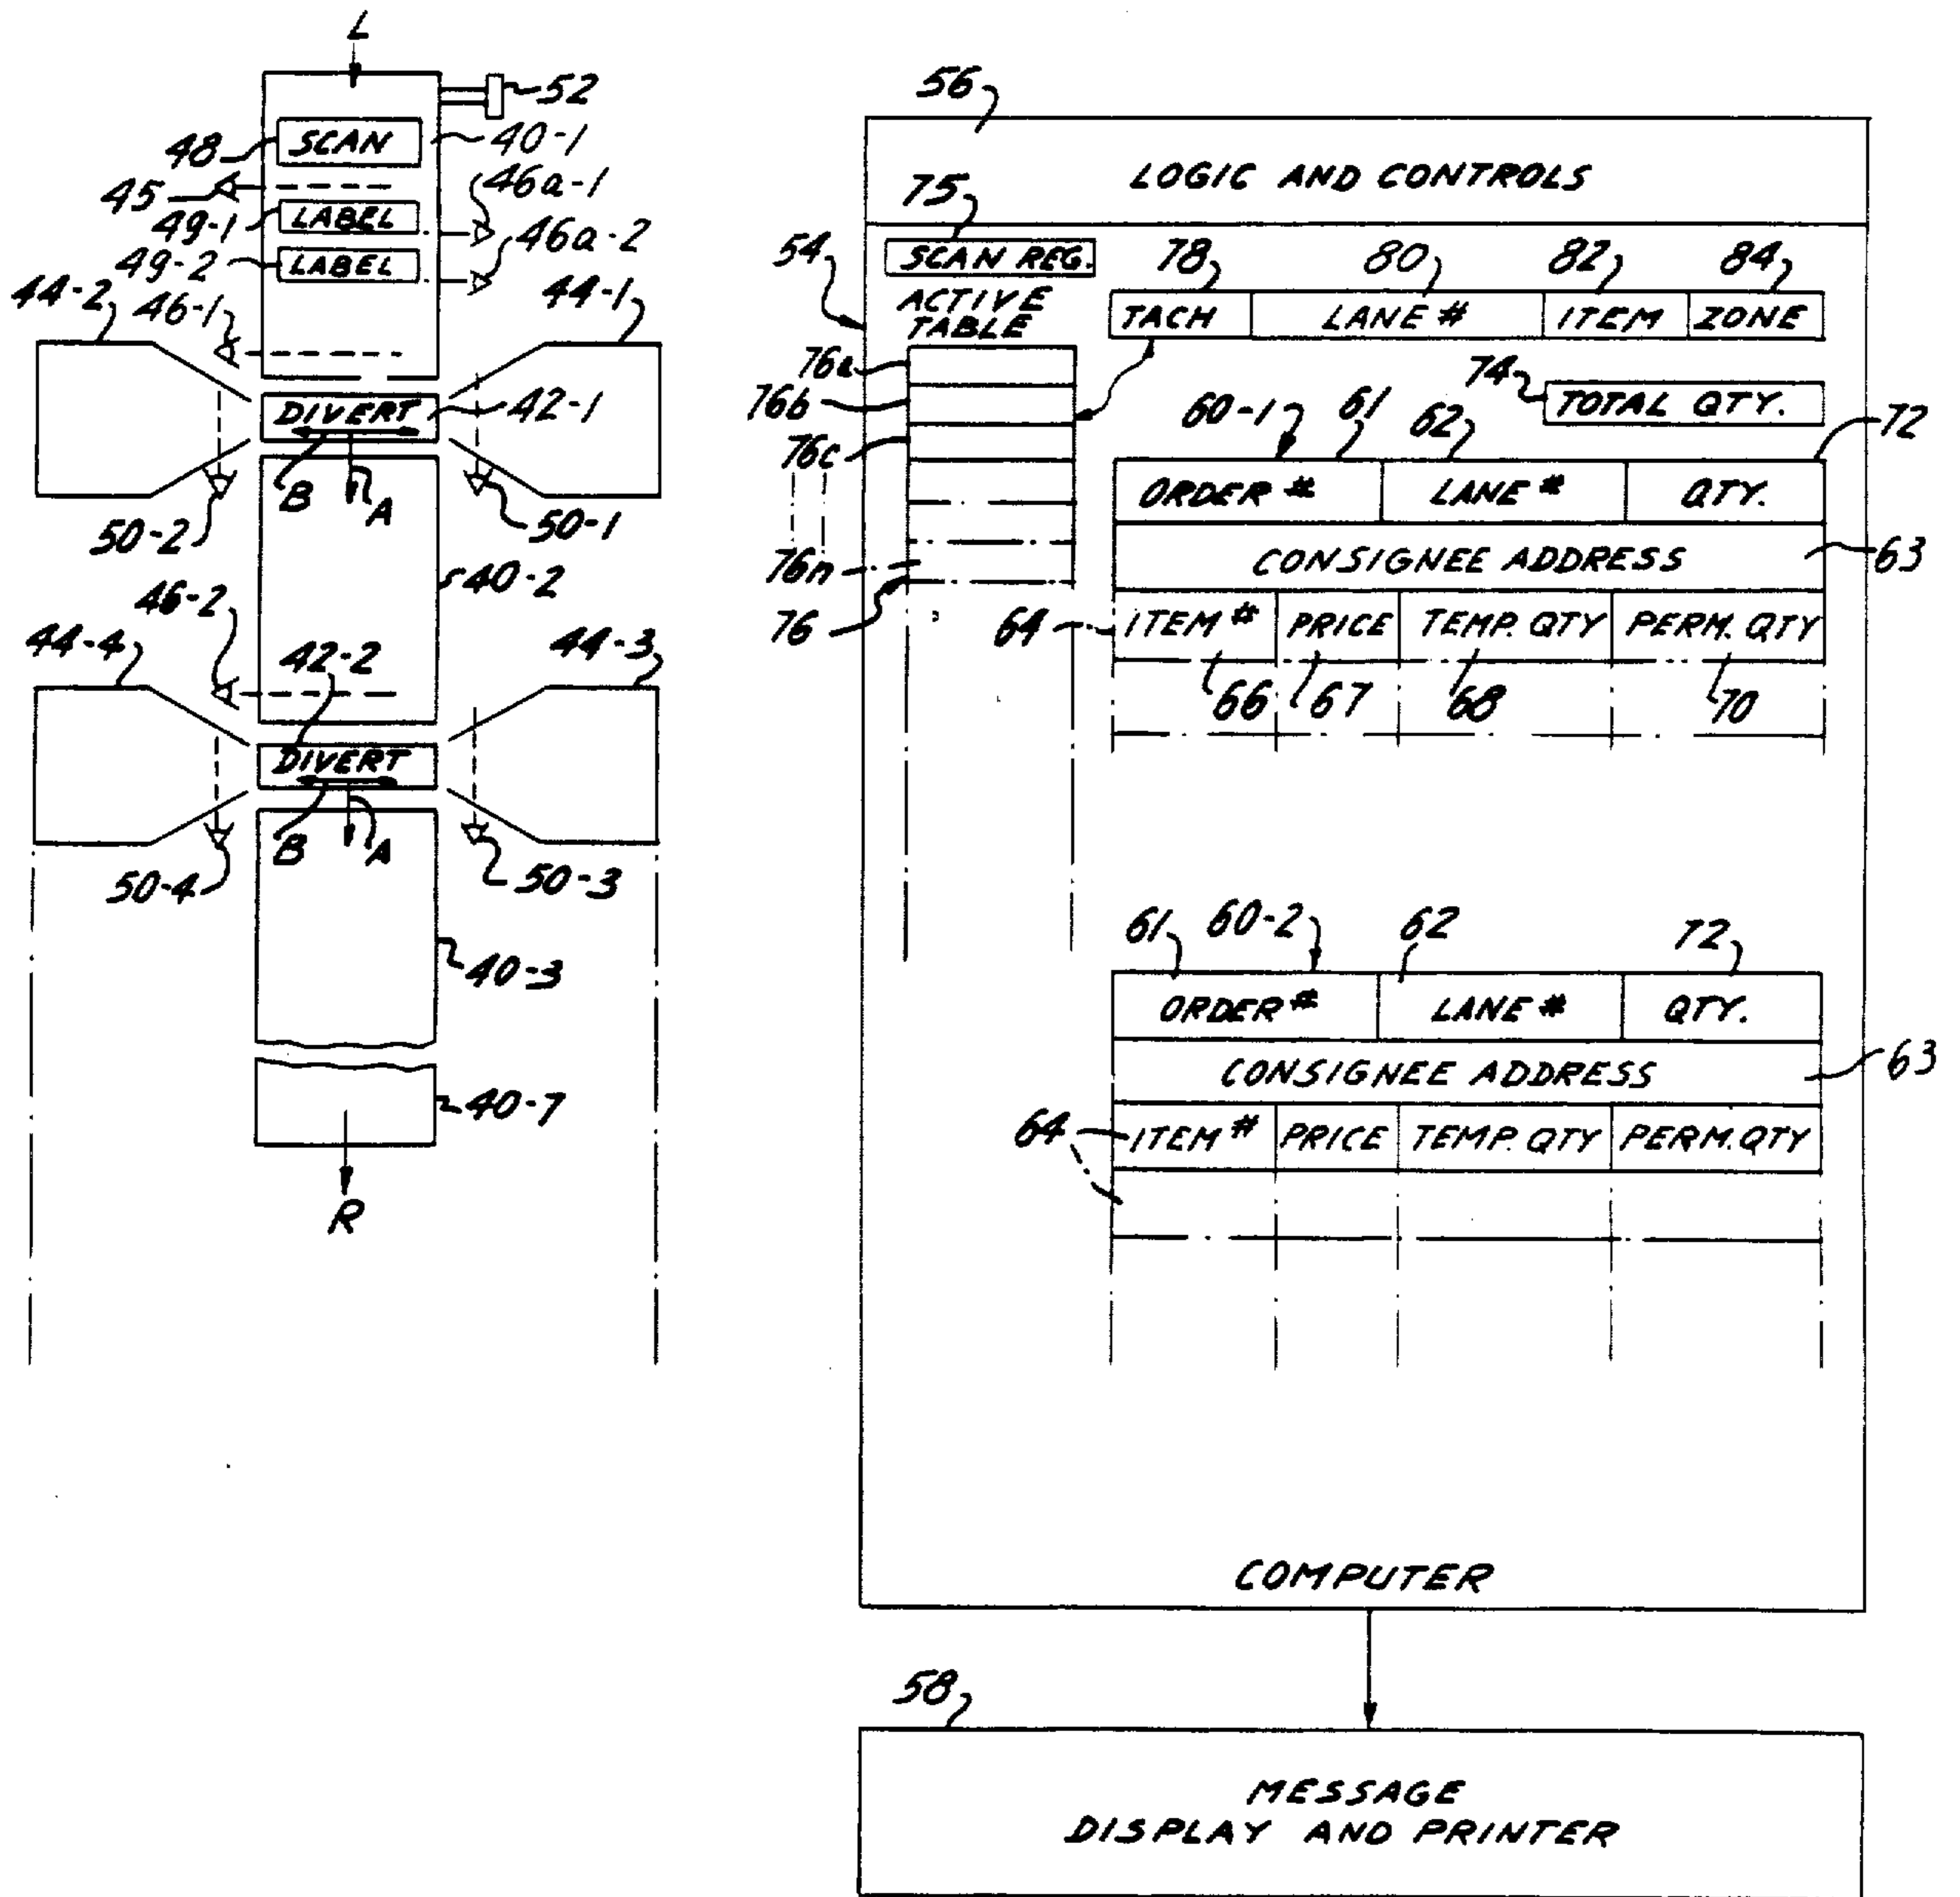 L
52
48 SCAN 40-1
45 46a-1
49-1 LABEL
46a-2
49-2 LABEL
44-2 46-1 44-1
DIVERT 42-1
B A
50-2 50-1
40-2
46-2
44-4 42-2 44-3
DIVERT
B A
50-4 50-3
40-3
40-7
R
56
LOGIC AND CONTROLS
75
54 SCAN REG. 78 80 82 84
ACTIVE
TABLE
TACH LANE # ITEM ZONE
76a
76b
76c
76n
76
74 TOTAL QTY.
60-1 61 62 72
ORDER # LANE # QTY.
CONSIGNEE ADDRESS 63
64 ITEM # PRICE TEMP. QTY PERM. QTY
66 67 68 70
61 60-2 62 72
ORDER # LANE # QTY.
CONSIGNEE ADDRESS 63
64 ITEM # PRICE TEMP. QTY PERM. QTY
COMPUTER
58
MESSAGE
DISPLAY AND PRINTER